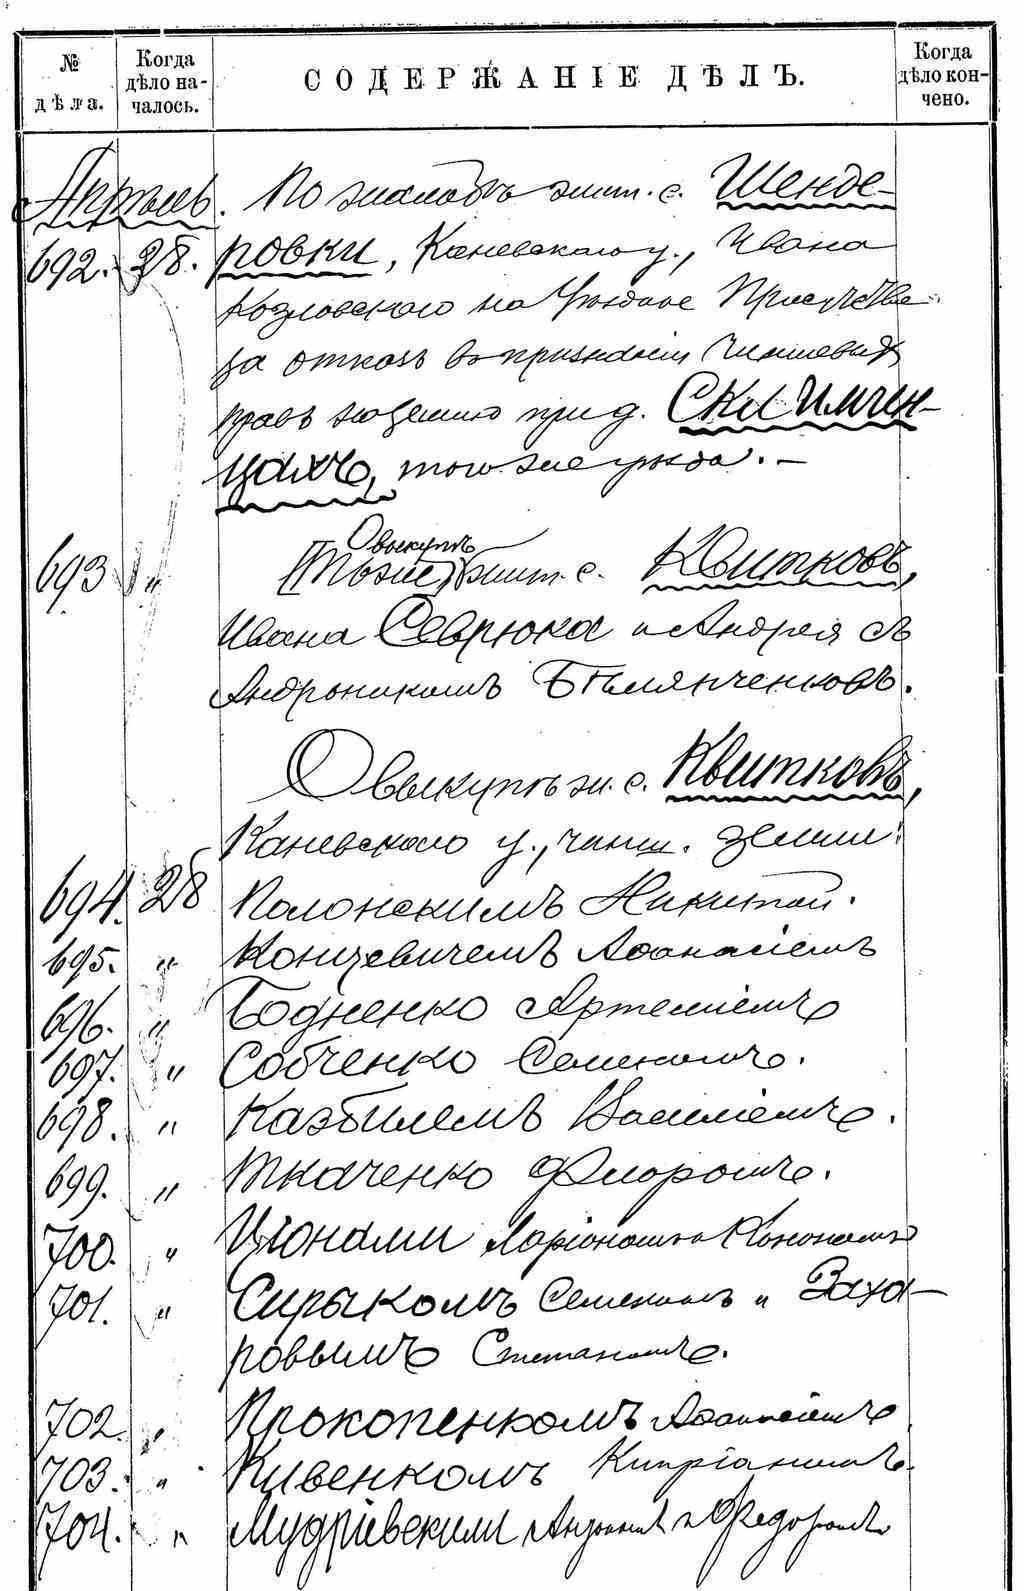 № дѣла.
Когда дѣло началось.
СОДЕРЖАНІЕ ДѢЛЪ.
Когда дѣло кончено.
Апрѣль. По жалобѣ жит. с. Шенде-
692. 28. ровки, Каневскаго у., Ивана
Козловскаго на Уѣздное Присутствіе
за отказъ въ признаніи чиншевыхъ
правъ на землю при д. Склименцахъ,
того же уѣзда. —
О выкупѣ
693 " (Тоже) жит. с. Квитковъ,
Ивана Севрюка и Андрея съ
Андроникомъ Бѣлянченковъ.
О выкупѣ ж. с. Квитковъ,
Каневскаго у., чинш. земли:
694. 28 Полонскимъ Никитой.
695. " Концевичемъ Афанасіемъ
696. " Бодненко Артеміемъ
697. " Собченко Семеномъ.
698. " Казбилемъ Василіемъ.
699. " Ткаченко Флоромъ.
700. " Цюнами Ларіономъ и Конономъ
701. " Сирыкомъ Семеномъ и Заха-
ровымъ Степаномъ.
702. " Прокопенкомъ Афанасіемъ
703. " Кивенкомъ Кипріаномъ.
704. " Мудріевскими и Федоромъ